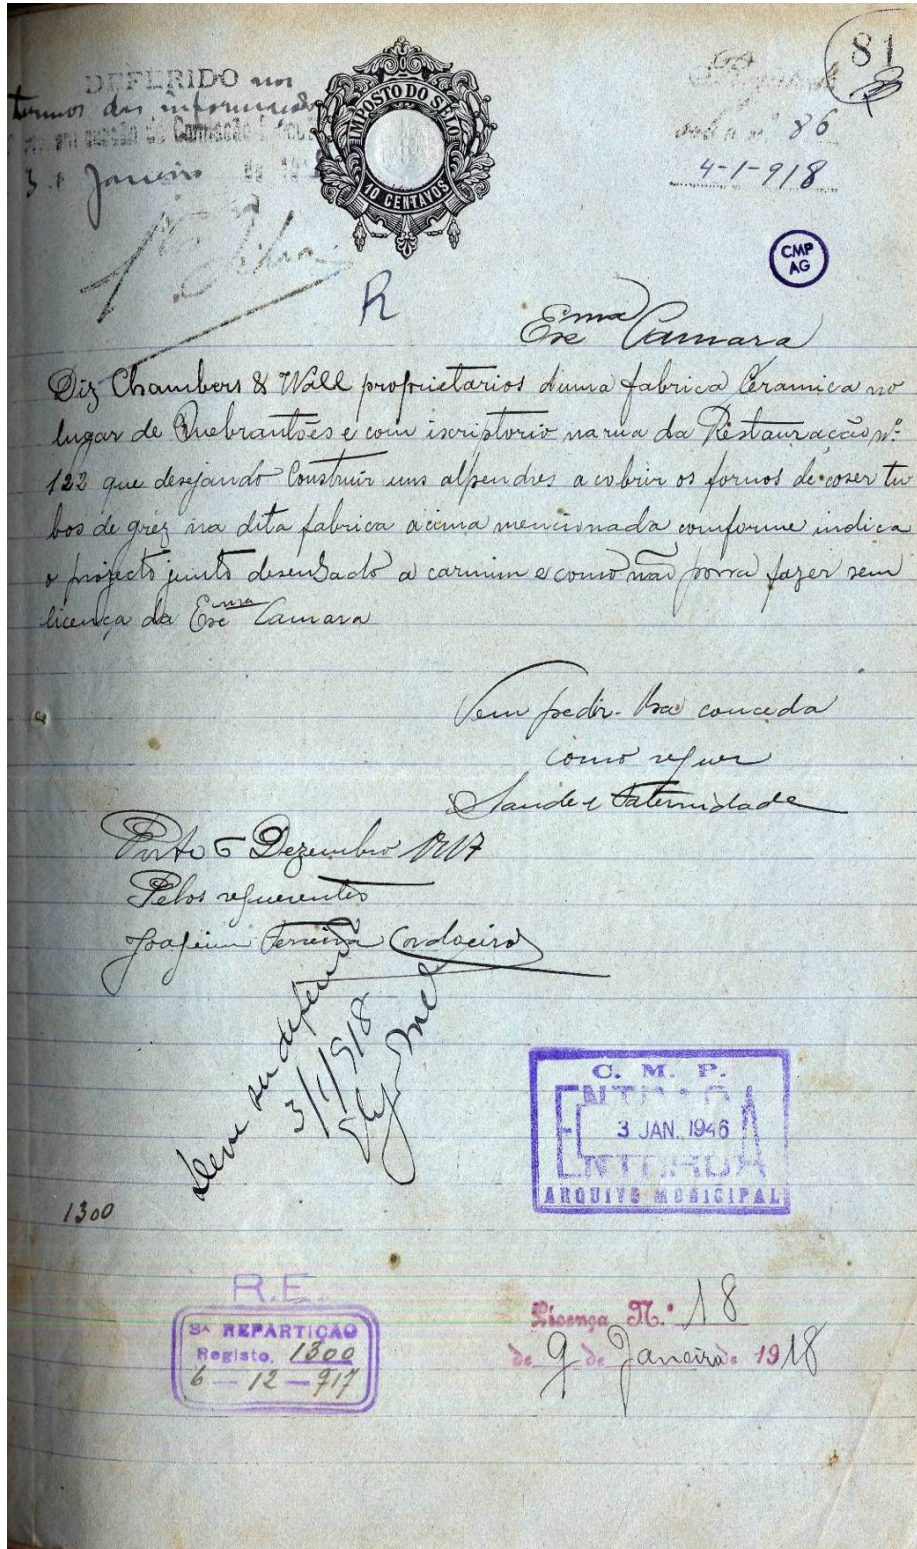 81
DEFERIDO nos
termos das informações
em sessão da Comissão
3 Janeiro de 191
Silva
IMPOSTO DO SELO
10 CENTAVOS
86
4-1-918
CMP
AG
R
Exma Camara
Diz Chambers & Wall proprietarios duma fabrica Ceramica no
lugar de Quebrantões e com iscriptorio na rua da Restauracção nº
122 que desejando Construir uns alpendres a cobrir os fornos de coser tu
bos de gréz na dita fabrica acima mencionada comforme indica
o projecto junto desenhado a carmim e como não possa fazer sem
licença da Exma Camara
Vem pedir lha conceda
como requer
Saude e Faternidade
Porto 6 Dezembro 1917
Pelos requerentes
Joaquim Ferreira Cordoeiro
Deve ser deferido
3/1/918
C. M. P.
ENTRADA
3 JAN. 1946
ENTRADA
ARQUIVO MUNICIPAL
1300
R.E.
3ª REPARTIÇÃO
Registo 1300
6 - 12 - 917
Licença N.º 18
de 9 de Janeiro de 1918